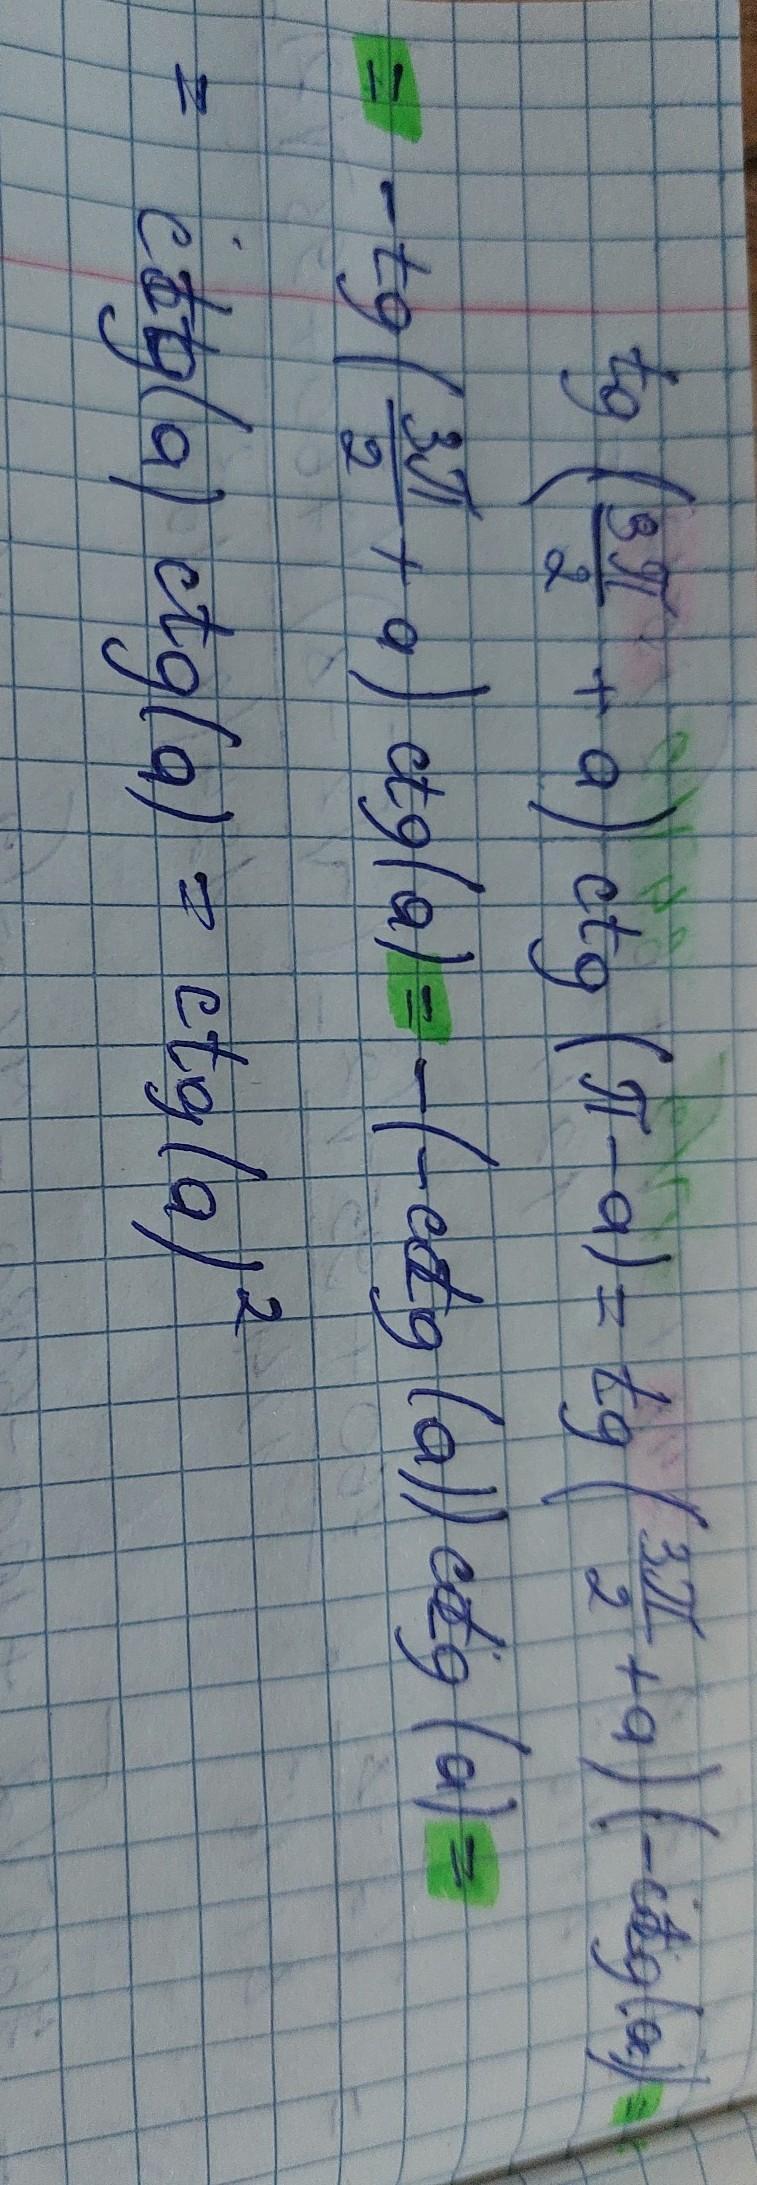 tg(3π/2 + a) ctg(π - a) = tg(3π/2 + a)(-ctg(a)) =
= -tg(3π/2 + a) ctg(a) = -(-ctg(a)) ctg(a) =
= ctg(a) ctg(a) = ctg(a)²